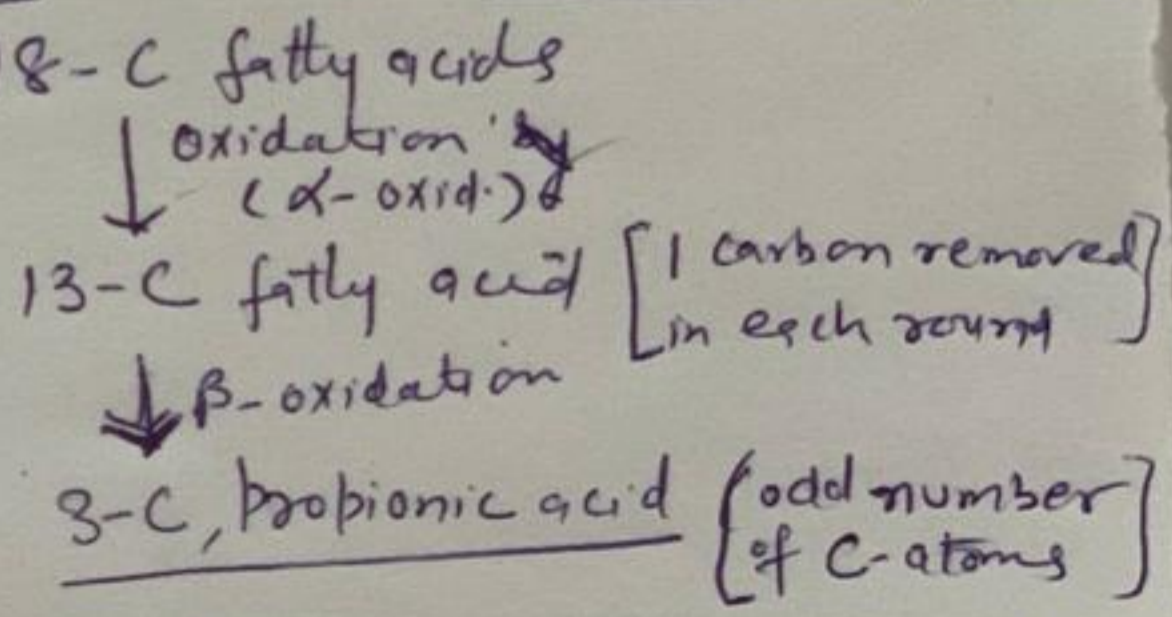 8-C fatty acids
↓ oxidation by
(α-oxid.)
13-C fatty acid [1 carbon removed
in each round]
↓ β-oxidation
3-C, propionic acid [odd number
of C-atoms]